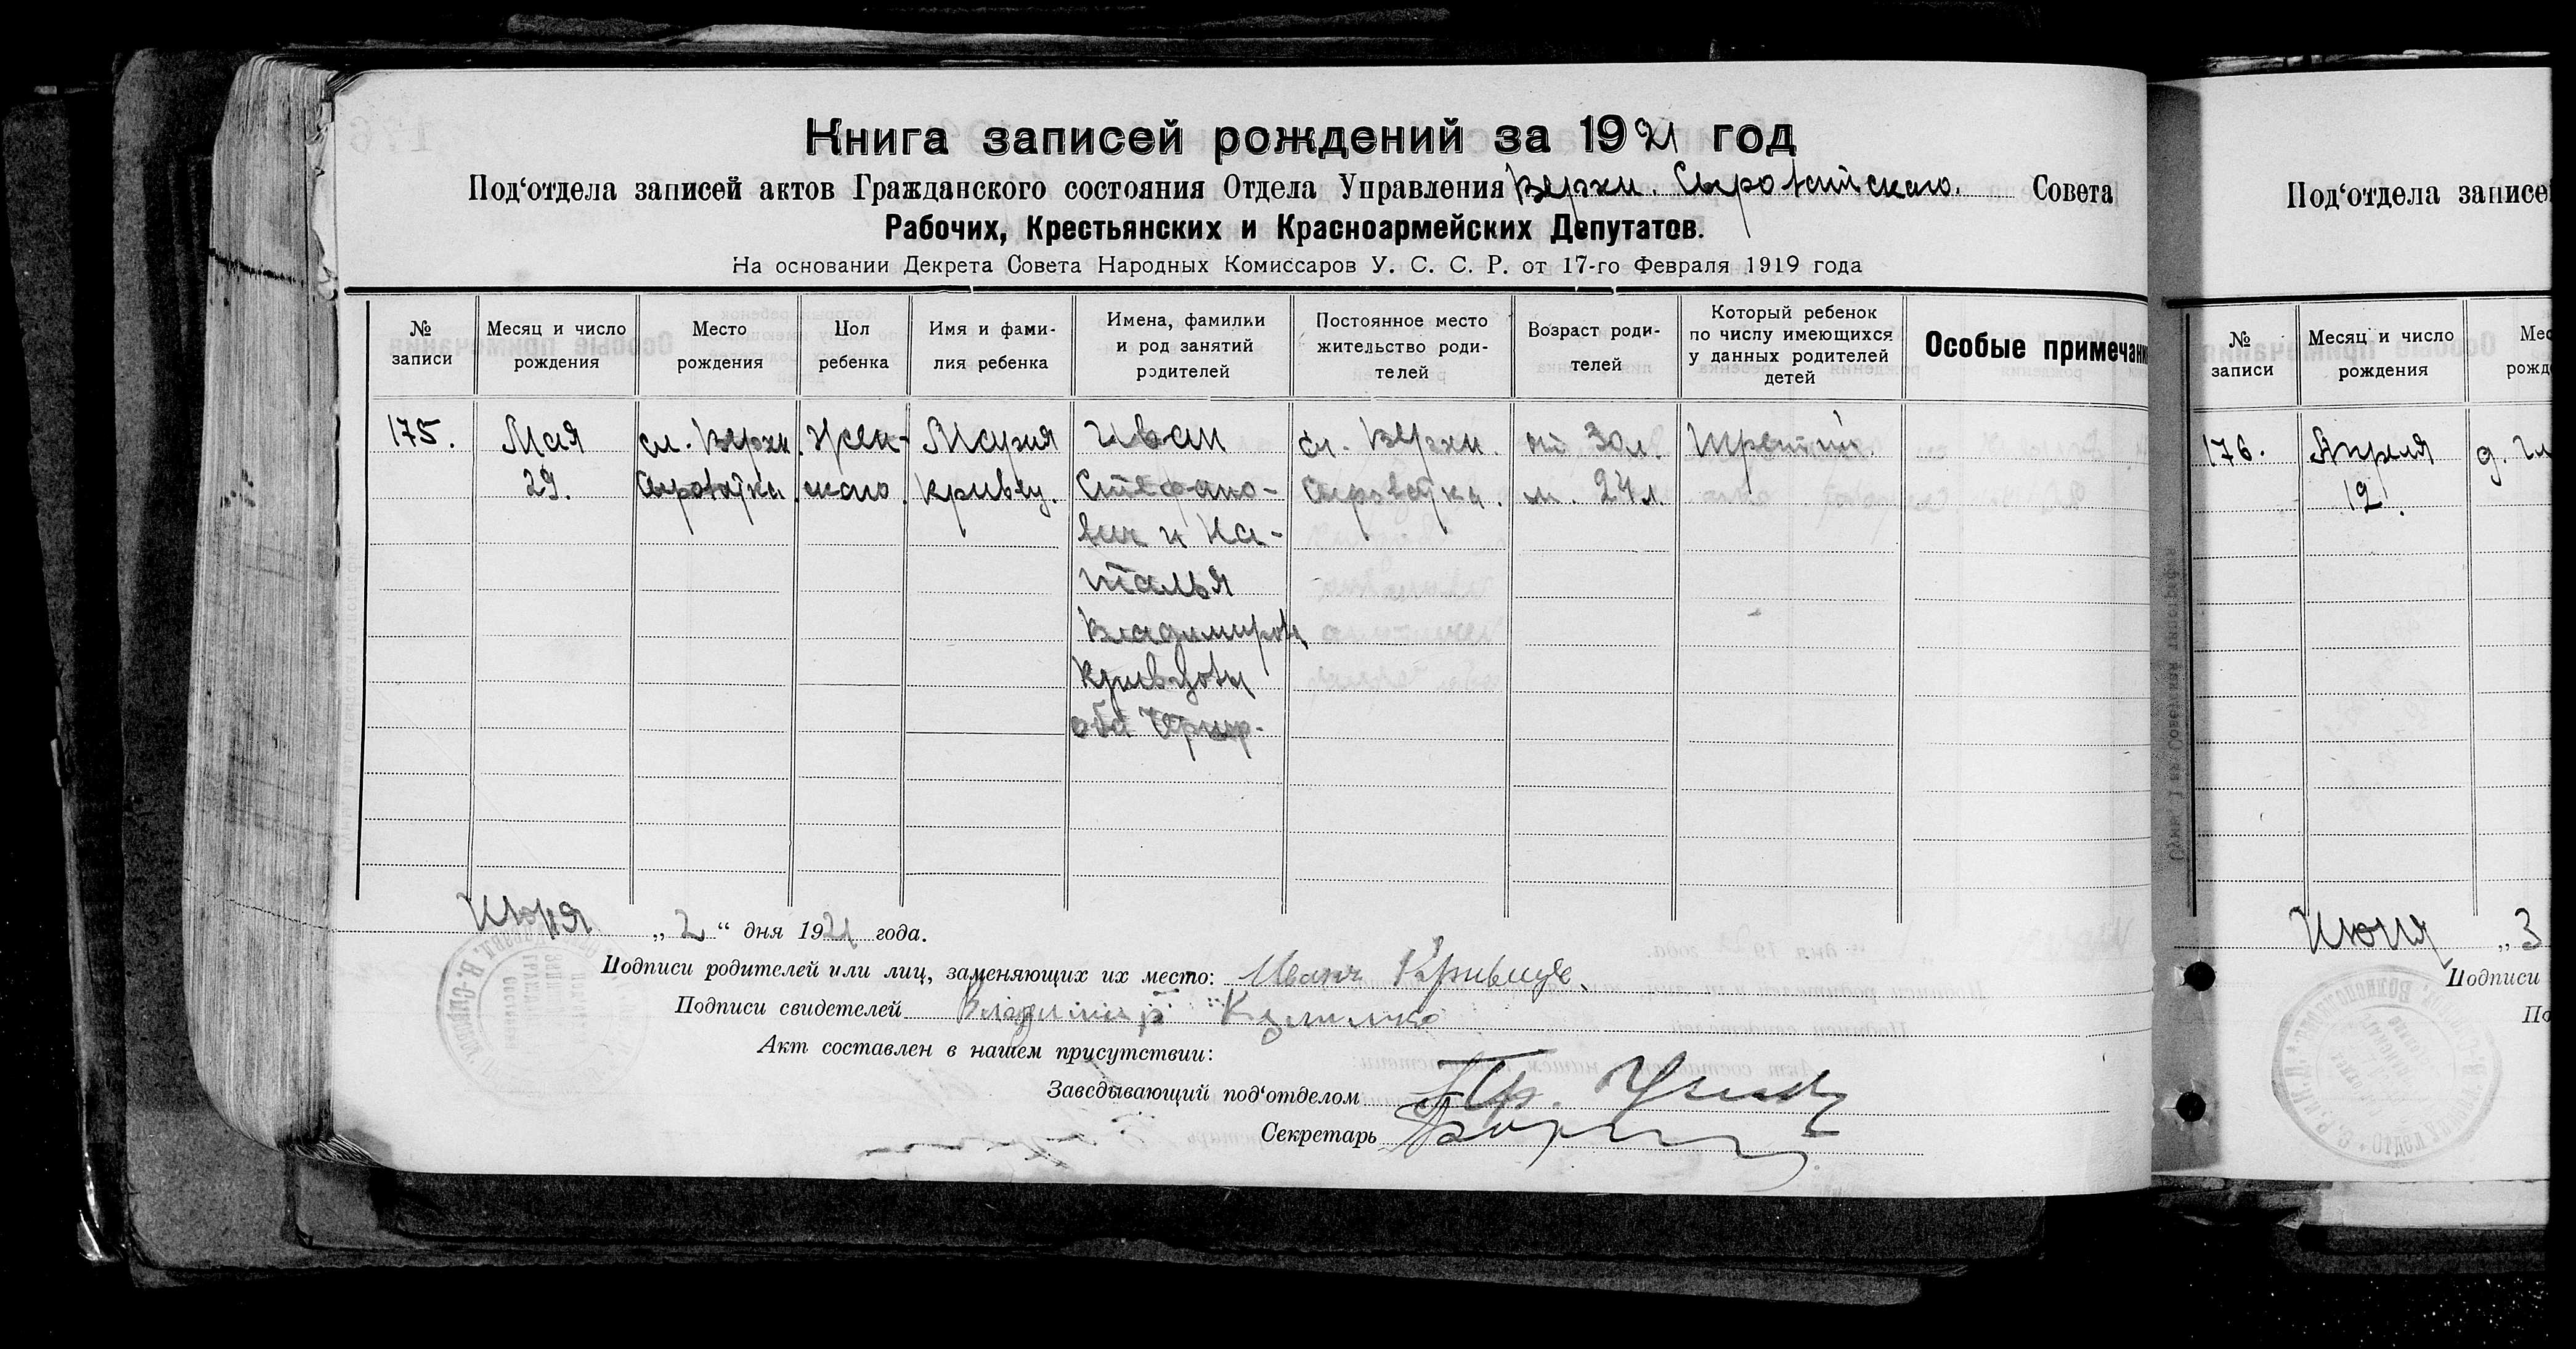 Книга записей рождений за 1921 год
Под‘отдела записей актов Гражданского состояния Отдела Управления Верхн. Сыроватского. Совета
Рабочих, Крестьянских и Красноармейских Депутатов.
На основании Декрета Совета Народных Комиссаров У. С. С. Р. от 17-го Февраля 1919 года
№ записи
Месяц и число рождения
Место рождения
Пол ребенка
Имя и фами-
лия ребенка
Имена, фамилии
и род занятий
родителей
Постоянное место
жительство роди-
телей
Возраст роди-
телей
Который ребенок
по числу имеющихся
у данных родителей
детей
Особые примечани
175.
Мая
29.
сл. Верхн.
Сыроватка
Жен-
ского
Мария
Кривец.
Иван
Стефано-
вич и На-
талья
Владимиров
Кривцовы
оба
сл. Верхн.
Сыроватка.
от. 30 л.
м. 24 л.
Третий
Июня „2“ дня 1921 года.
Подписи родителей или лиц, заменяющих их место: Иван
Подписи свидетелей Владимир
Акт составлен в нашем присутствии:
Заведывающий под‘отделом
Секретарь
Под‘отдела записе
№ записи
Месяц и число рождения
Мес
рожд
176.
Апреля
12.
Июня „3
Подписи